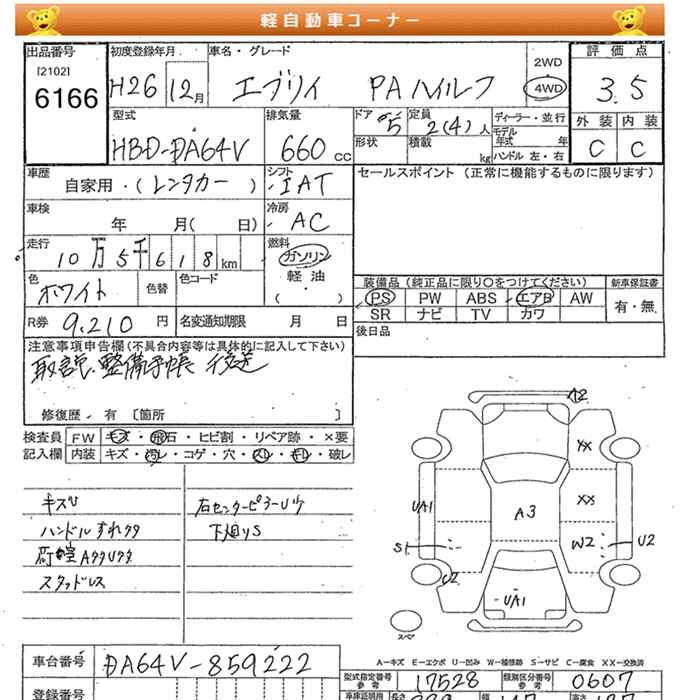 軽自動車コーナー
出品番号 初度登録年月 車名・グレード 2WD 評価点
[2102]
6166 H26 12月 エブリイ PAハイルーフ 4WD 3.5
型式 排気量 ドア 定員 ディーラー・並行 外装 内装
HBD-DA64V 660cc 5 2(4)人 モデル年式 年 C C
形状 積載 kg ハンドル 左・右
車歴 シフト セールスポイント(正常に機能するものに限ります)
自家用・(レンタカー) IAT
車検 冷房
年 月( 日) AC
走行 燃料
10万5千618km ガソリン
軽油
( ・ )
色 色替 色コード 装備品(純正品に限り○をつけてください) 新車保証書
ホワイト PS PW ABS エアB AW 有・無
SR ナビ TV カワ
R券 9,210円 名変通知期限 月 日 後日品
注意事項申告欄(不具合内容等は具体的に記入して下さい)
取説、整備手帳 後送
修復歴・有〔箇所 〕
検査員 FW キズ・飛石・ヒビ割・リペア跡・×要
記入欄 内装 キズ・汚レ・コゲ・穴・スレ・キレ・破レ
キズU 右センターピラーUケ
ハンドルすれククタ 下廻りS
スタッドレス
A2
XX
UA1 A3 XX
S1 W2 U2
U2
UA1
スペア
A-キズ E-エクボ U-凹み W-補修跡 S-サビ C-腐食 XX-交換済
車台番号 DA64V-859222 型式指定番号 参考 17528 類別区分番号 参考 0607
登録番号 車庫証明用 長さ